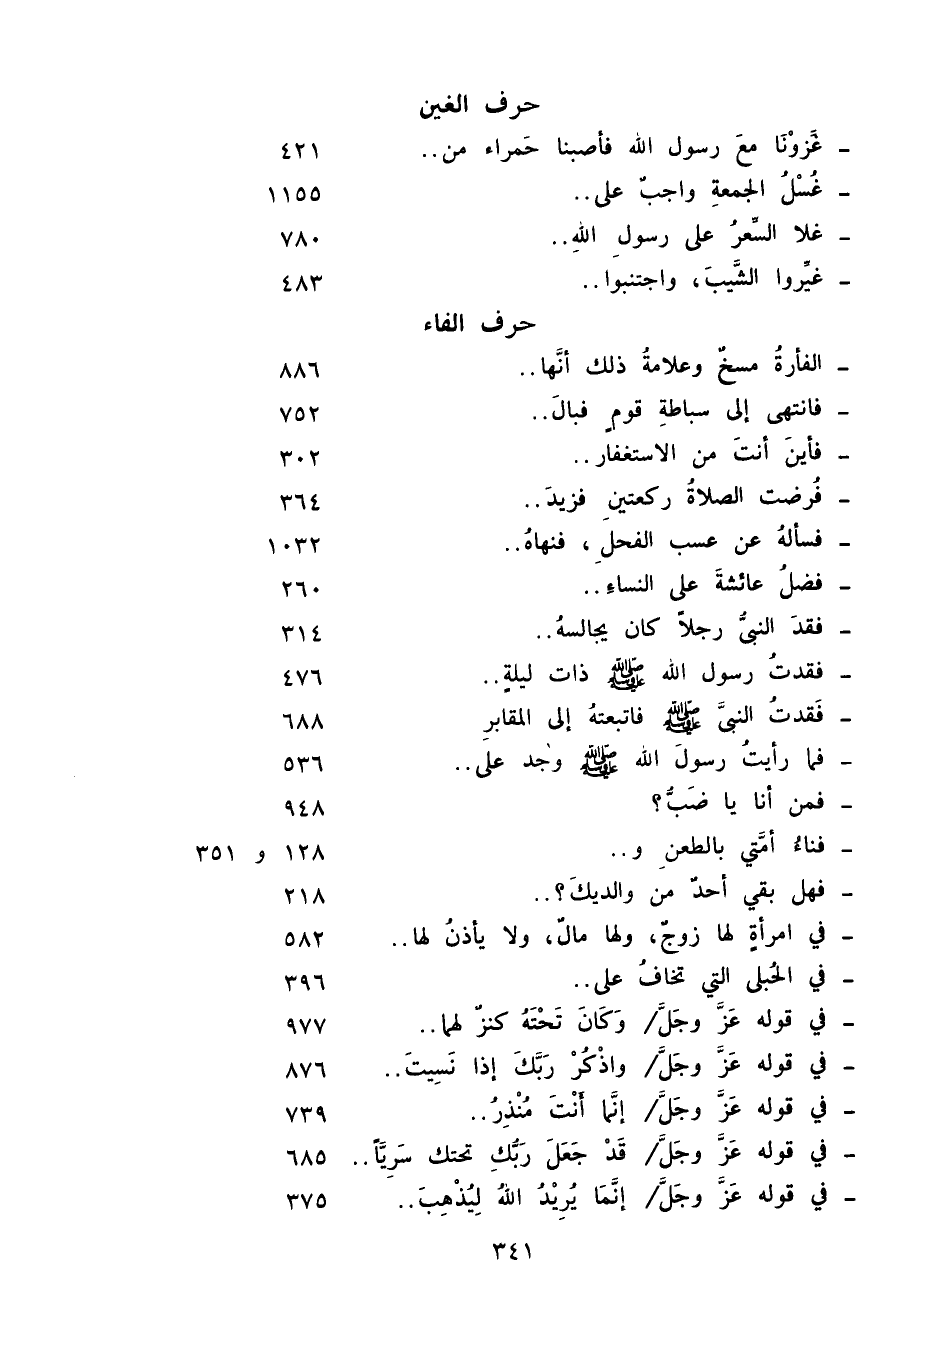 حرف الغين
- غَزَوْنَا معَ رسول الله فأصبنا حَمراء من.. ٤٢١
- غُسْلُ الجمعةِ واجبٌ على.. ١١٥٥
- غلا السِّعرُ على رسولِ اللهِ.. ٧٨٠
- غيِّروا الشَّيبَ، واجتنبوا.. ٤٨٣
حرف الفاء
- الفأرةُ مسخٌ وعلامةُ ذلك أنَّها.. ٨٨٦
- فانتهى إلى سباطةِ قومٍ فبالَ.. ٧٥٢
- فأينَ أنتَ من الاستغفار.. ٣٠٢
- فُرضت الصلاةُ ركعتينِ فزيدَ.. ٣٦٤
- فسألهُ عن عسب الفحلِ، فنهاهُ.. ١٠٣٢
- فضلُ عائشةَ على النساءِ.. ٢٦٠
- فقدَ النبيُّ رجلاً كان يجالسهُ.. ٣١٤
- فقدتُ رسول الله ﷺ ذات ليلةٍ.. ٤٧٦
- فَقدتُ النبيَّ ﷺ فاتبعتهُ إلى المقابرِ ٦٨٨
- فما رأيتُ رسولَ الله ﷺ وجد على.. ٥٣٦
- فمن أنا يا ضَبُّ؟ ٩٤٨
- فناءُ أمَّتي بالطعنِ و.. ١٢٨ و ٣٥١
- فهل بقي أحدٌ من والديكَ؟.. ٢١٨
- في امرأةٍ لها زوجٌ، ولها مالٌ، ولا يأذنُ لها.. ٥٨٢
- في الحُبلى التي تخافُ على.. ٣٩٦
- في قوله عَزَّ وجَلَّ/ وَكَانَ تَحْتَهُ كنزٌ لهما.. ٩٧٧
- في قوله عَزَّ وجَلَّ/ واذْكُرْ رَبَّكَ إذا نَسِيتَ.. ٨٧٦
- في قوله عَزَّ وجَلَّ/ إنَّما أَنْتَ مُنْذِرُ.. ٧٣٩
- في قوله عَزَّ وجَلَّ/ قَدْ جَعَلَ رَبُّكِ تحتك سَرِيَّاً.. ٦٨٥
- في قوله عَزَّ وجَلَّ/ إنَّمَا يُرِيْدُ اللهُ لِيُذْهِبَ.. ٣٧٥
٣٤١